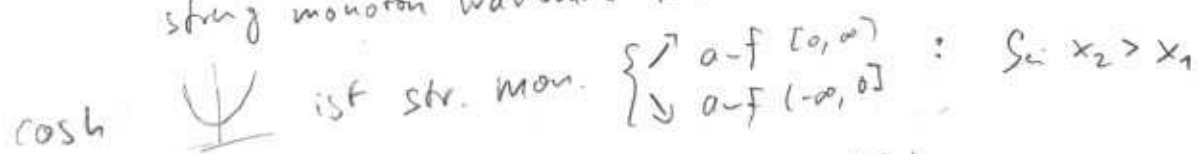 streng monoton
cosh ist str. mon. { ↗ auf [0, ∞) ↘ auf (-∞, 0] : Sei x₂ > x₁